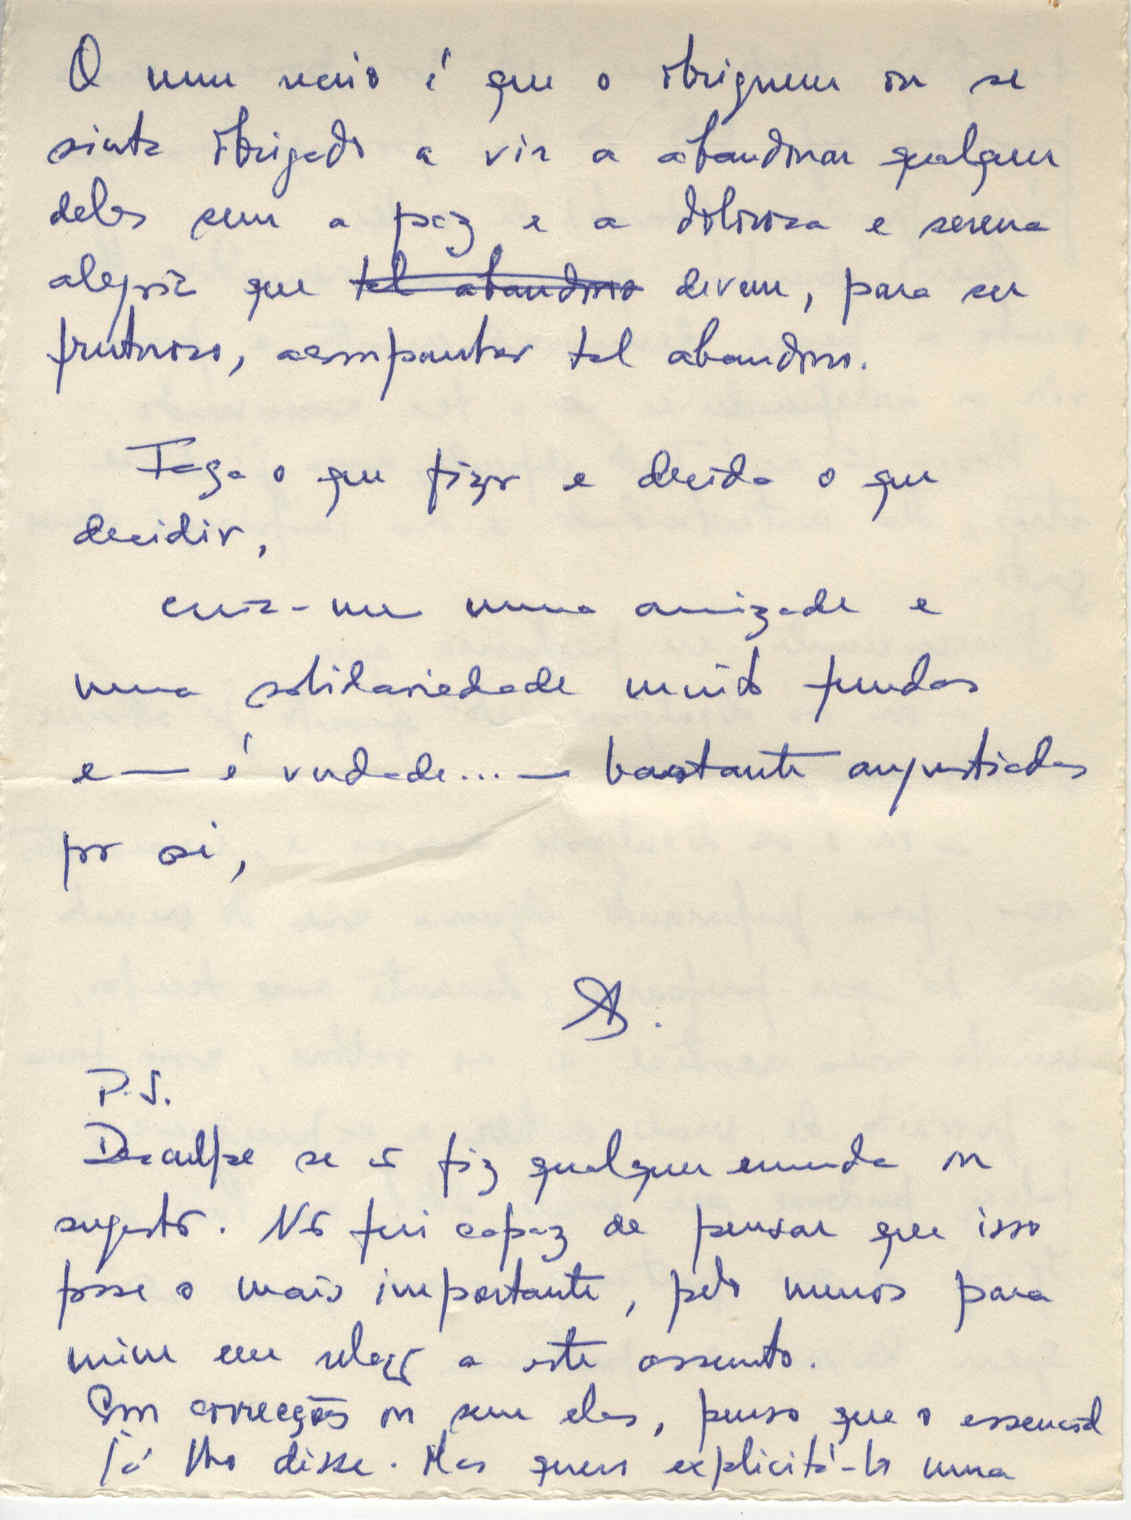 O meu receio é que o obriguem ou se
sinta obrigado a vir a abandonar qualquer
deles sem a paz e a dolorosa e serena
alegria que tal abandono devem, para ser
frutuoso, acompanhar tal abandono.
Faça o que fizer e decida o que
decidir,
creia-me numa amizade e
numa solidariedade muito fundas
e — é verdade... — bastante angustiadas
por si,
AB.
P.S.
Desculpe se só fiz qualquer emenda ou
sugestão. Não fui capaz de pensar que isso
fosse o mais importante, pelo menos para
mim em relação a este assunto.
Com correcções ou sem elas, penso que o essencial
já lho disse. Mas quero explicitá-lo uma